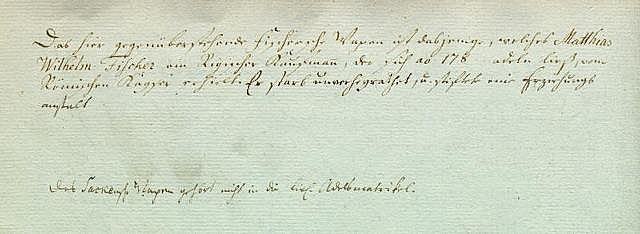 Das hier gegenüberstehende Fischersche Wapen ist dasjenige, welches Matthias
Wilhelm Fischer ein Rigischer Kaufman, der sich aō 178 adeln ließ, vom
Römischen Kayser erhielt. Er starb unverheyrathet, u. stiftete eine Erziehungs
anstalt
Das Wapen gehört nicht in die Adelsmatrikel.